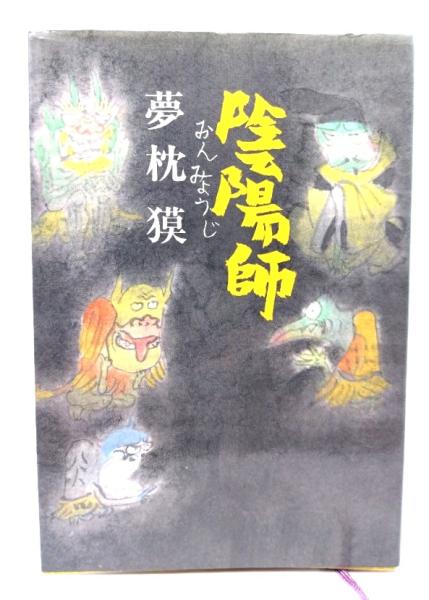 陰陽師
おんみょうじ
夢枕獏